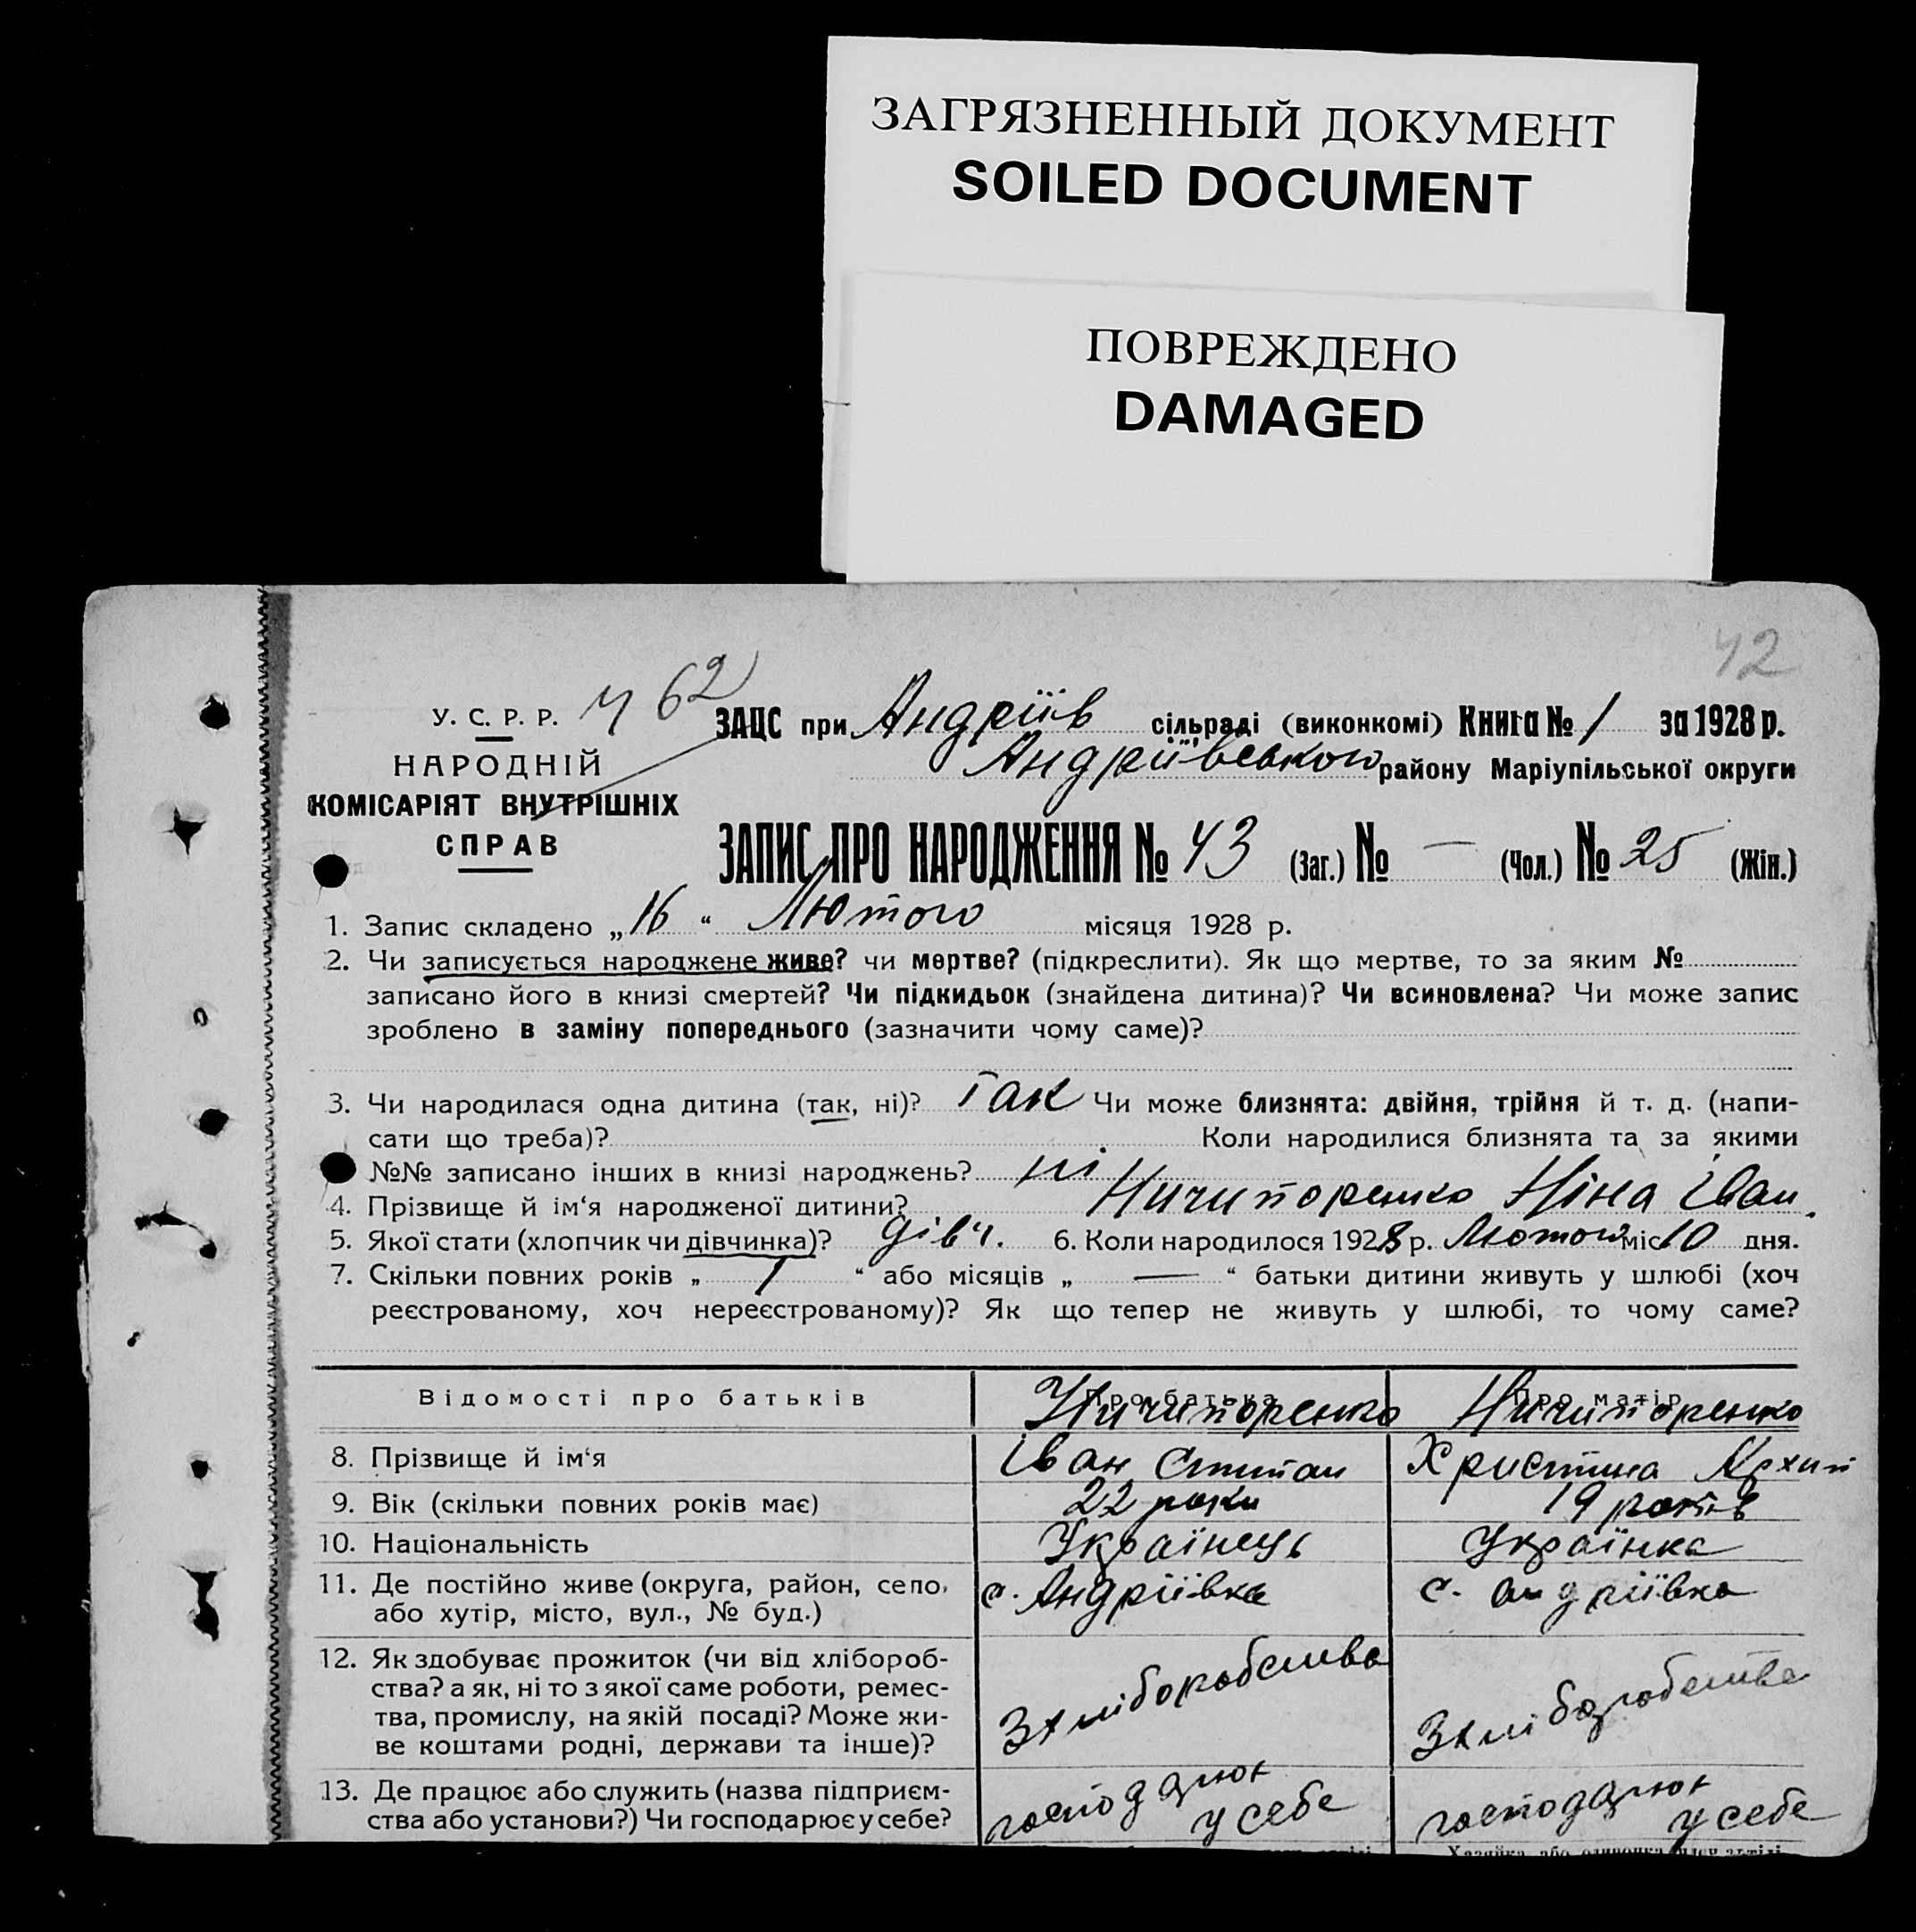 ЗАГРЯЗНЕННЫЙ ДОКУМЕНТ
SOILED DOCUMENT
ПОВРЕЖДЕНО
DAMAGED
42
62
У. С. Р. Р.
НАРОДНІЙ
КОМІСАРІЯТ ВНУТРІШНІХ
СПРАВ
ЗАЦС при Андріїв сільраді (виконкомі) Книга № 1 за 1928 р.
Андріївського району Маріупільської округи
ЗАПИС ПРО НАРОДЖЕННЯ № 43 (Заг.) № — (Чол.) № 25 (Жін.)
1. Запис складено „16“ Лютого місяця 1928 р.
2. Чи записується народжене живе? чи мертве? (підкреслити). Як що мертве, то за яким №
записано його в книзі смертей? Чи підкидьок (знайдена дитина)? Чи всиновлена? Чи може запис
зроблено в заміну попереднього (зазначити чому саме)?
3. Чи народилася одна дитина (так, ні)? Так Чи може близнята: двійня, трійня й т. д. (напи-
сати що треба)? Коли народилися близнята та за якими
№№ записано інших в книзі народжень? ні
4. Прізвище й ім‘я народженої дитини? Ничипоренко Ніна Іван.
5. Якої стати (хлопчик чи дівчинка)? дівч. 6. Коли народилося 1928 р. Лютого міс 10 дня.
7. Скільки повних років „ 1 “ або місяців „ — “ батьки дитини живуть у шлюбі (хоч
реєстрованому, хоч нереєстрованому)? Як що тепер не живуть у шлюбі, то чому саме?
Відомості про батьків Про батька Про матір
Ничипоренко Ничипоренко
8. Прізвище й ім‘я Іван Степан Христина Архип
9. Вік (скільки повних років має) 22 роки 19 років
10. Національність Українець Українка
11. Де постійно живе (округа, район, село, с. Андріївка с. Андріївка
або хутір, місто, вул., № буд.)
12. Як здобуває прожиток (чи від хлібороб- З хліборобства З хліборобства
ства? а як, ні то з якої саме роботи, ремес-
тва, промислу, на якій посаді? Може жи-
ве коштами родні, держави та інше)?
13. Де працює або служить (назва підприєм-
ства або установи?) Чи господарює у себе? у себе у себе